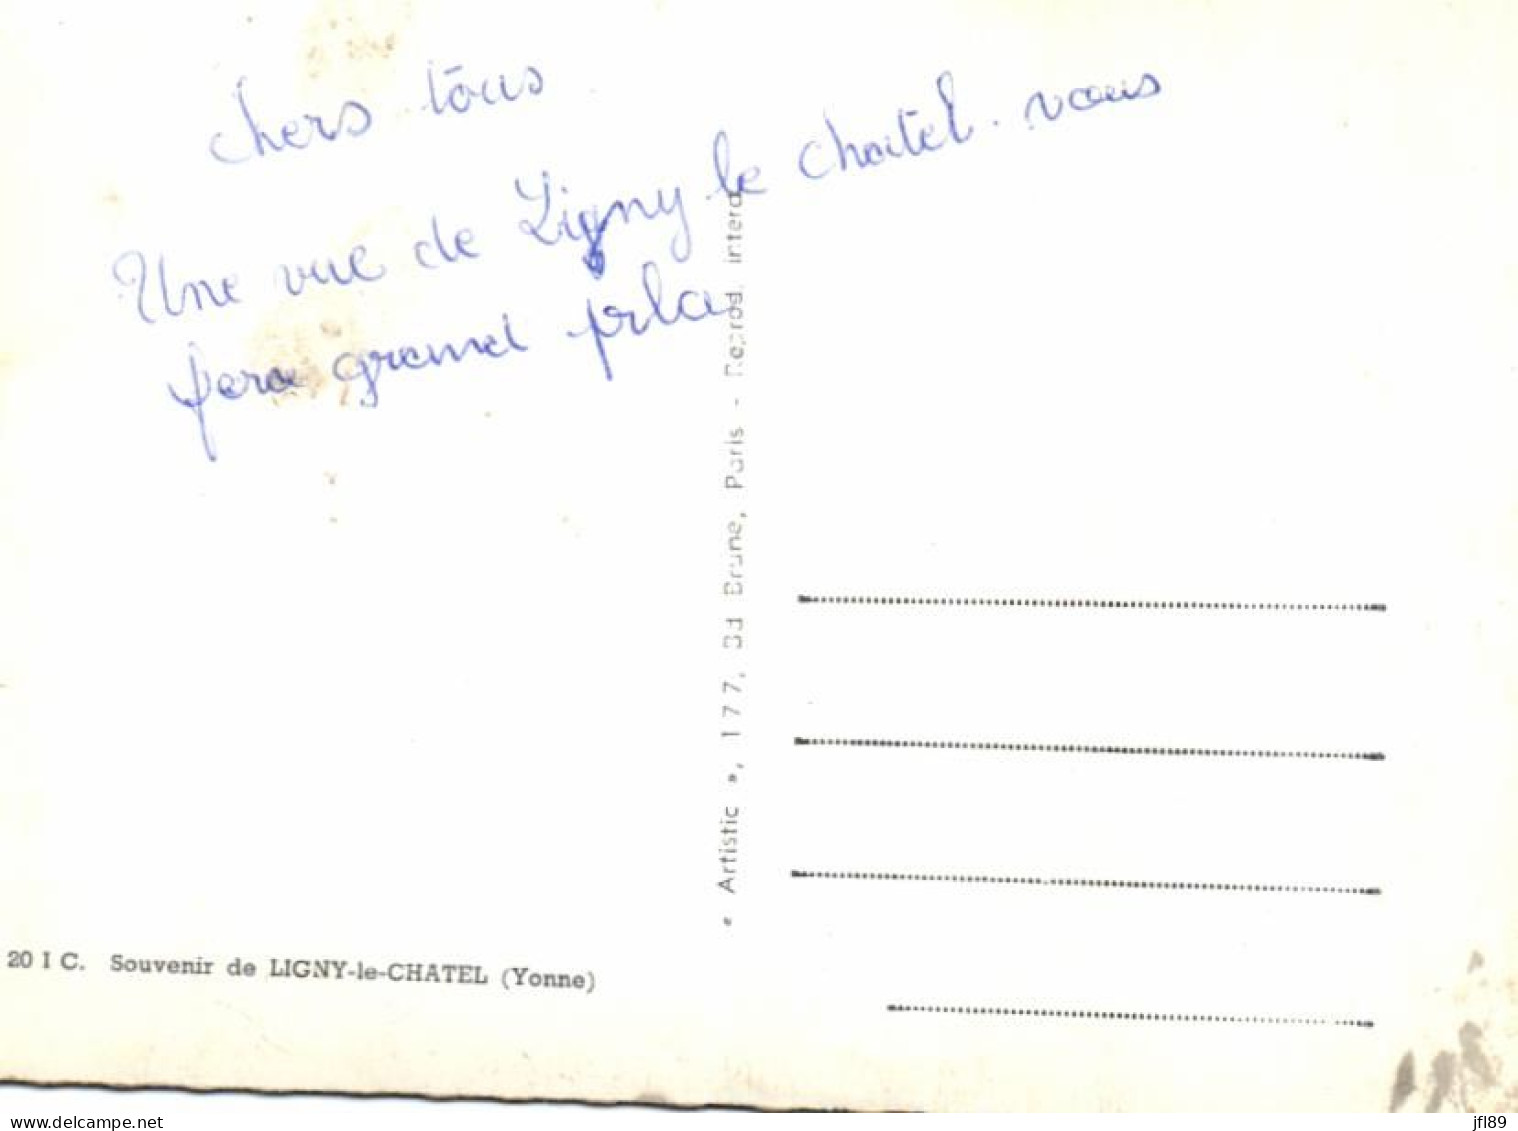 chers tous
Une vue de Ligny le chatel. vous
fera grand
« Artistic », 177, Bd Brune, Paris - Reprod. interd.
20 I C. Souvenir de LIGNY-le-CHATEL (Yonne)
www.delcampe.net
jfl89